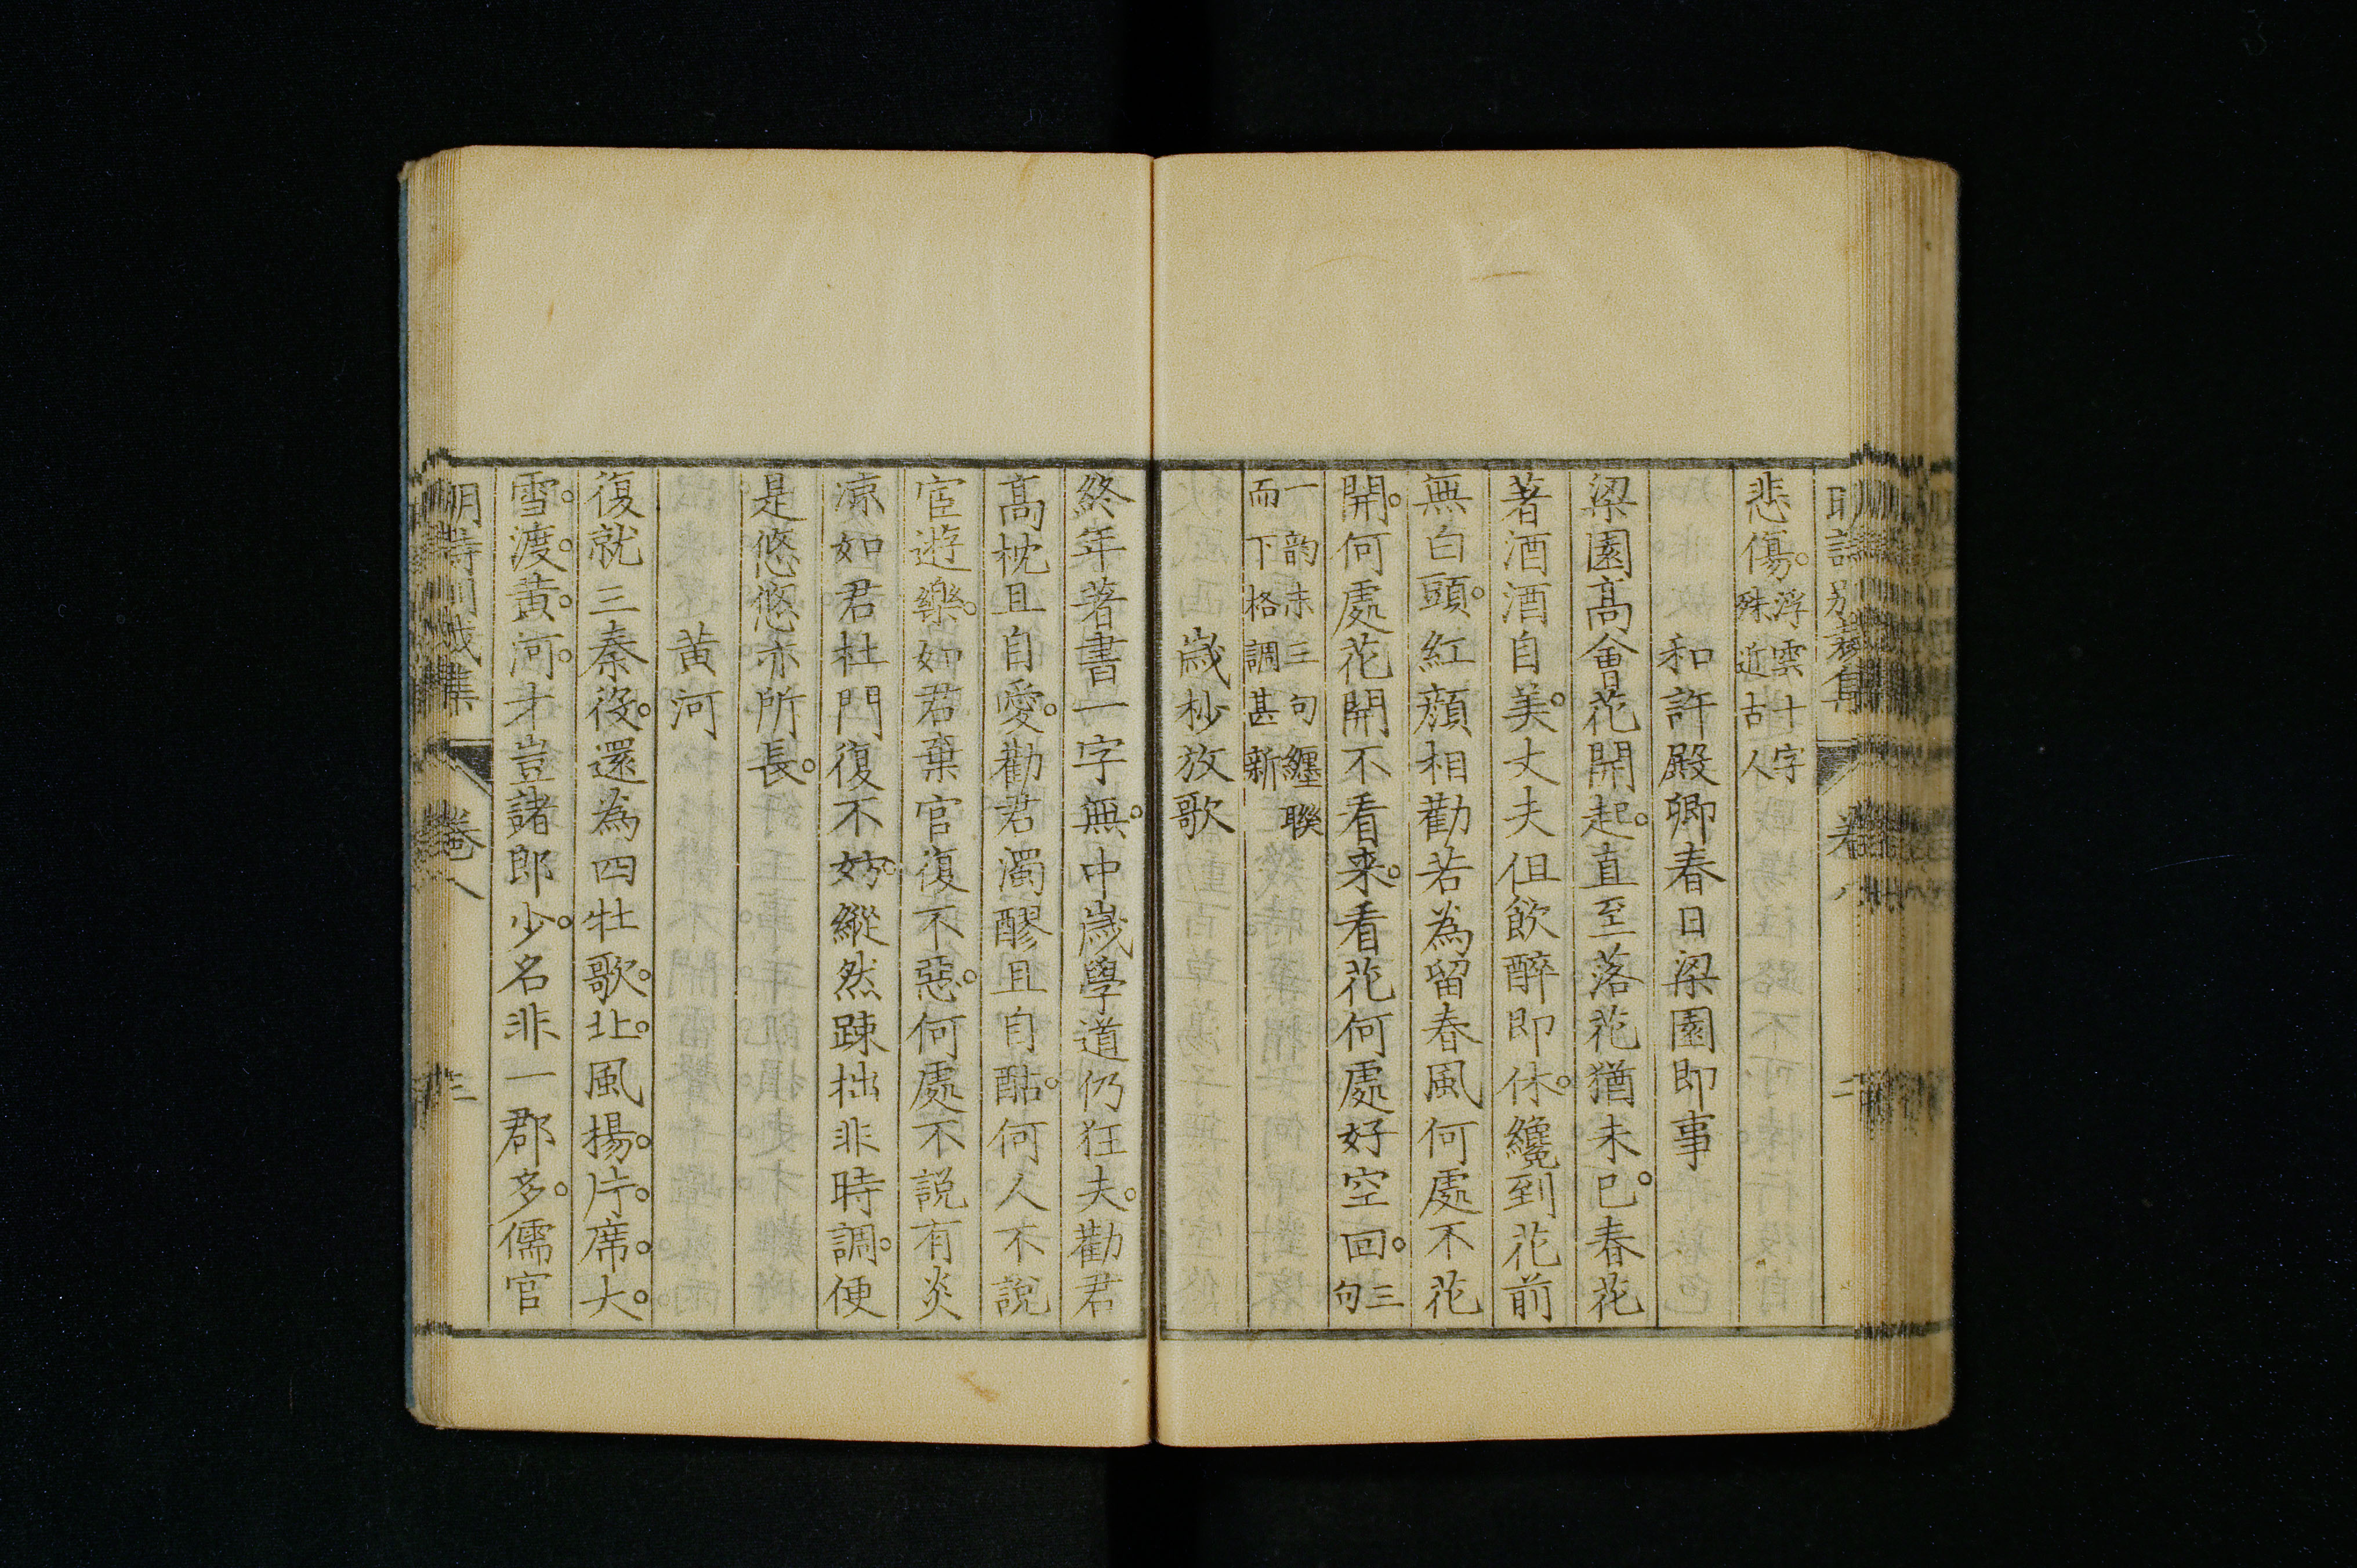 悲傷。浮雲十字殊近古人
和許殿卿春日梁園即事
梁園高會花開起。直至落花猶未已。春花
著酒酒自美。丈夫但飲醉即休。纔到花前
無白頭。紅顔相勸若為留春風何處不花
開。何處花開不看来。看花何處好空回。三句
一韵末三句纏聯而下格調甚新
歲杪放歌
終年著書一字無。中歲學道仍狂夫。勸君
高枕且自愛。勸君濁醪且自酤。何人不說
宦遊樂。如君棄官復不惡。何處不説有炎
凉如君杜門復不妨。縱然踈拙非時調。便
是悠悠亦所長。
黄河
復就三秦役。還為四牡歌。北。風揚。片。席。大。
雪。渡。黄。河。才豈諸郎少。名非一郡多。儒官
明詩 集 卷八 三